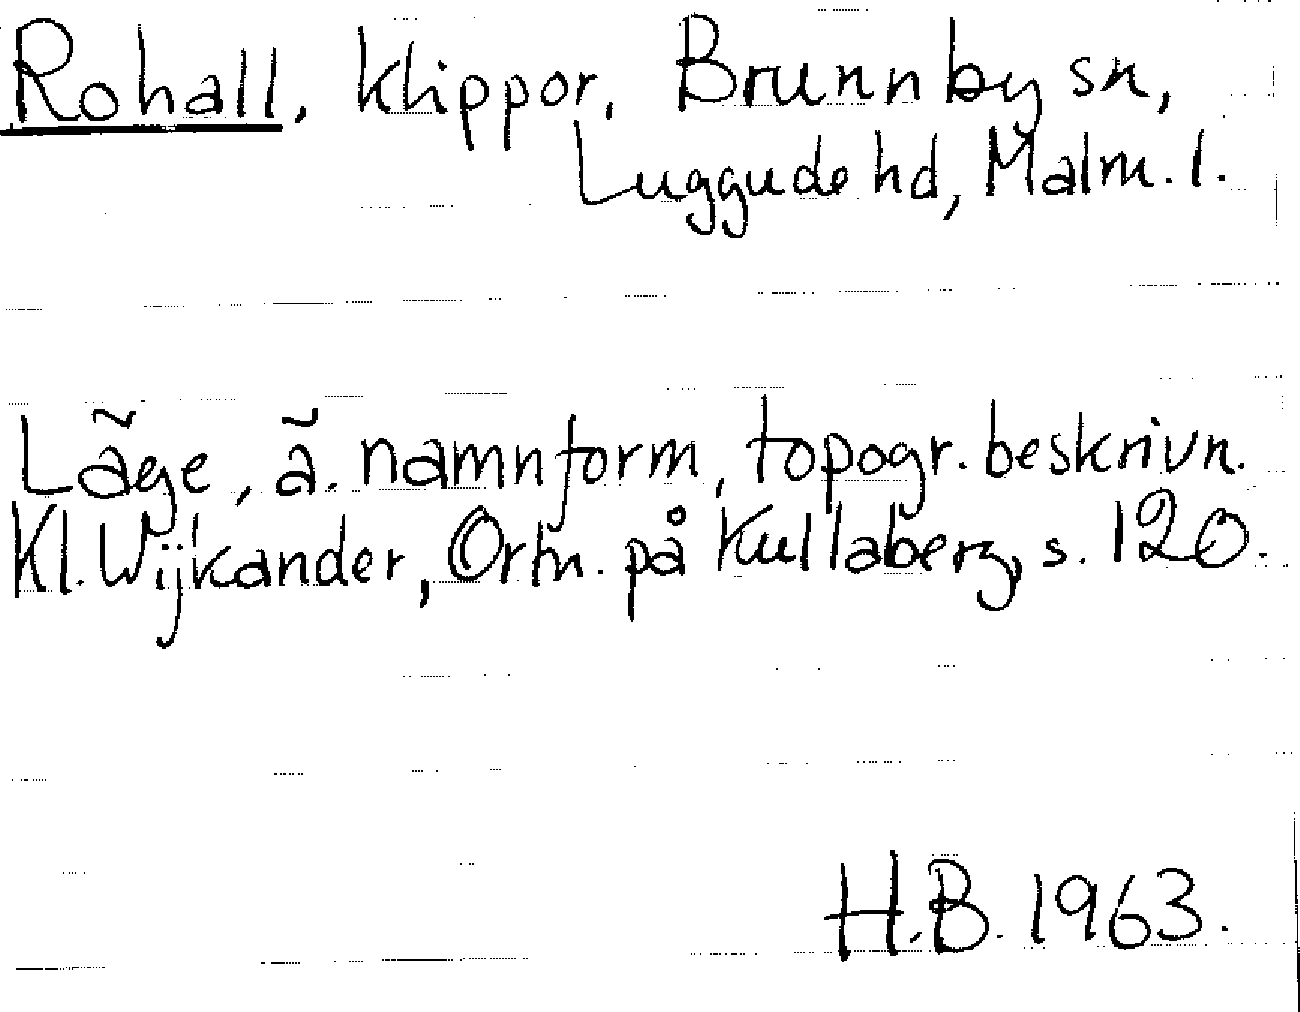 Rohall, klippor, Brunnby sn,
Luggude hd, Malm. l.
Läge, ä. namnform, topogr. beskrivn.
Kl. Wijkander, Ortn. på Kullaberg, s. 120.
H.B. 1963.